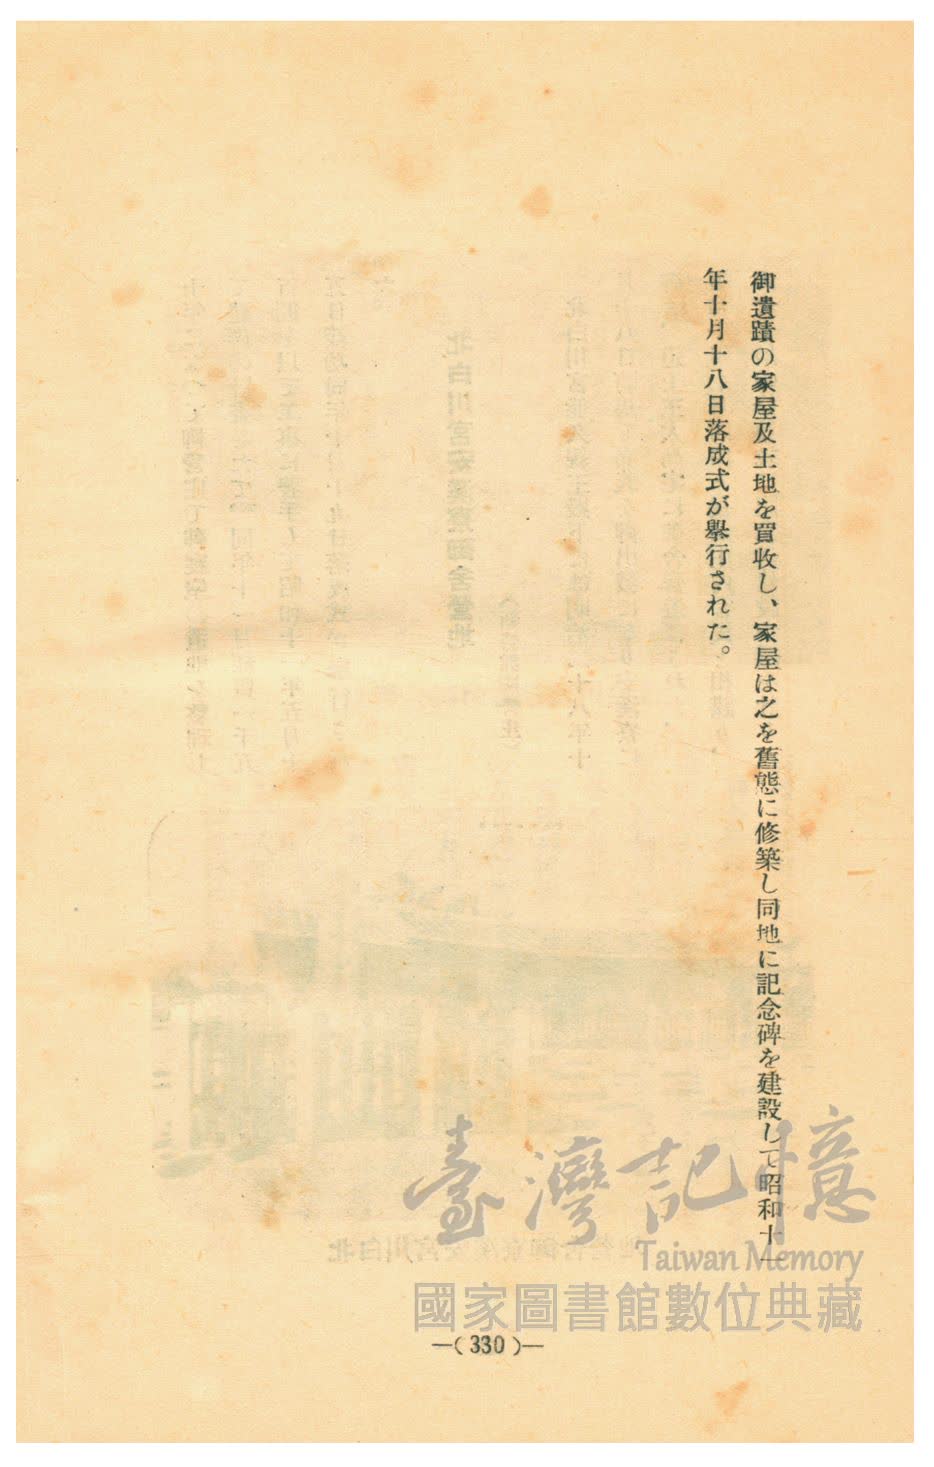 御遺蹟の家屋及土地を買收し、家屋は之を舊態に修築し同地に記念碑を建設して昭和十一
年十月十八日落成式が擧行された。
臺灣記憶
Taiwan Memory
國家圖書館數位典藏
—(330)—